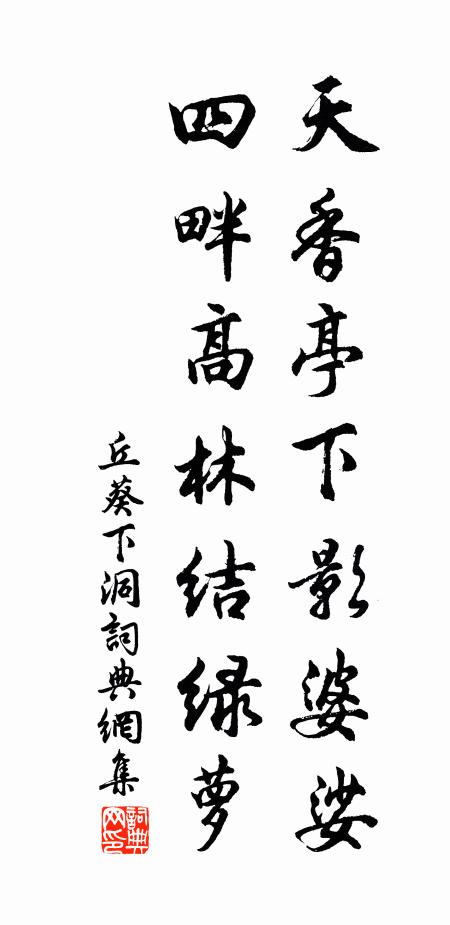 天香亭下影婆娑
四畔高林结绿萝
丘葵下洞詞典網集
詞典网印